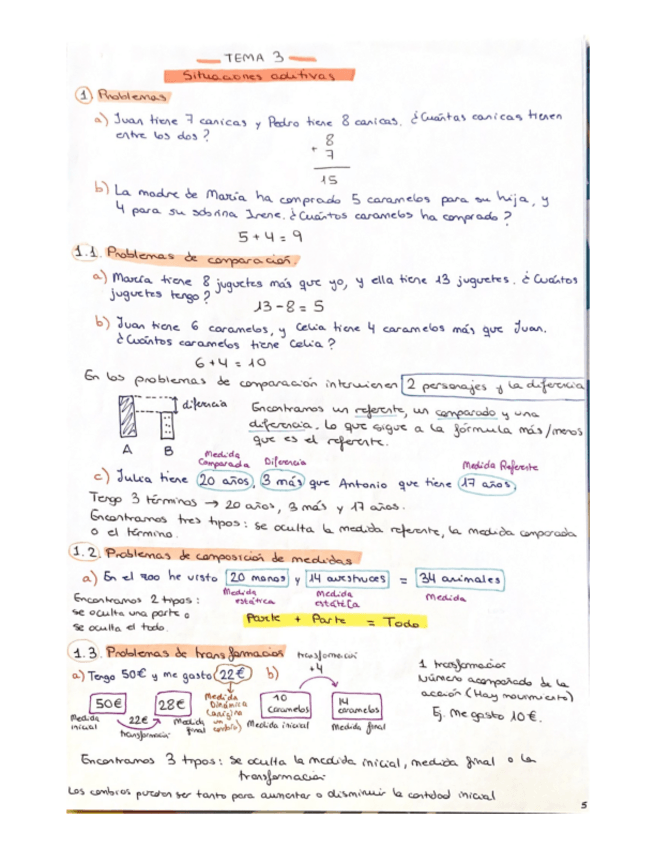 TEMA 3
Situaciones aditivas
1 Problemas
a) Juan tiene 7 canicas y Pedro tiene 8 canicas. ¿Cuántas canicas tienen
entre los dos?
8
+ 7
15
b) La madre de María ha comprado 5 caramelos para su hija, y
4 para su sobrina Irene. ¿Cuántos caramelos ha comprado?
5 + 4 = 9
1.1. Problemas de comparación.
a) María tiene 8 juguetes más que yo, y ella tiene 13 juguetes. ¿Cuántos
juguetes tengo?
13 - 8 = 5
b) Juan tiene 6 caramelos, y Celia tiene 4 caramelos más que Juan.
¿Cuántos caramelos tiene Celia?
6 + 4 = 10
En los problemas de comparación intervienen 2 personajes y la diferencia
diferencia
A B
Encontramos un referente, un comparado y una
diferencia. Lo que sigue a la fórmula más/menos
que es el referente.
Medida Comparada Diferencia Medida Referente
c) Julia tiene 20 años, 3 más que Antonio que tiene 17 años.
Tengo 3 términos → 20 años, 3 más y 17 años.
Encontramos tres tipos: se oculta la medida referente, la medida comparada
o el término.
1.2. Problemas de composición de medidas
a) En el zoo he visto 20 monos y 14 avestruces = 34 animales
Medida estática Medida estática Medida
Encontramos 2 tipos:
se oculta una parte o
se oculta el todo.
Parte + Parte = Todo
1.3. Problemas de transformación
a) Tengo 50€ y me gasto 22€
50€ 28€
Medida inicial 22€ Medida final
transformación
Medida Dinámica (origina un cambio)
b) transformación
+4
10 caramelos 14 caramelos
Medida inicial Medida final
1 transformación
Número acompañado de la
acción (Hay movimiento)
Ej. Me gasto 10€.
Encontramos 3 tipos: Se oculta la medida inicial, medida final o la
transformación
Los cambios pueden ser tanto para aumentar o disminuir la cantidad inicial
5